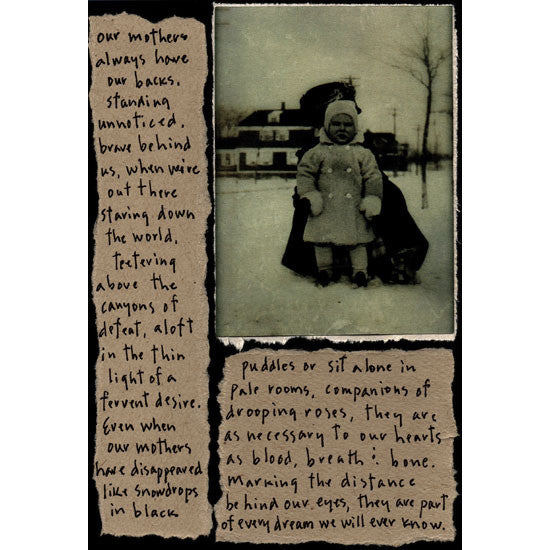 our mothers
always have
our backs,
standing
unnoticed,
brave behind
us, when we're
out there
staring down
the world,
teetering
above the
canyons of
defeat, aloft
in the thin
light of a
fervent desire.
Even when
our mothers
have disappeared
like snowdrops
in black
puddles or sit alone in
pale rooms, companions of
drooping roses, they are
as necessary to our hearts
as blood, breath & bone.
marking the distance
behind our eyes, they are part
of every dream we will ever know.